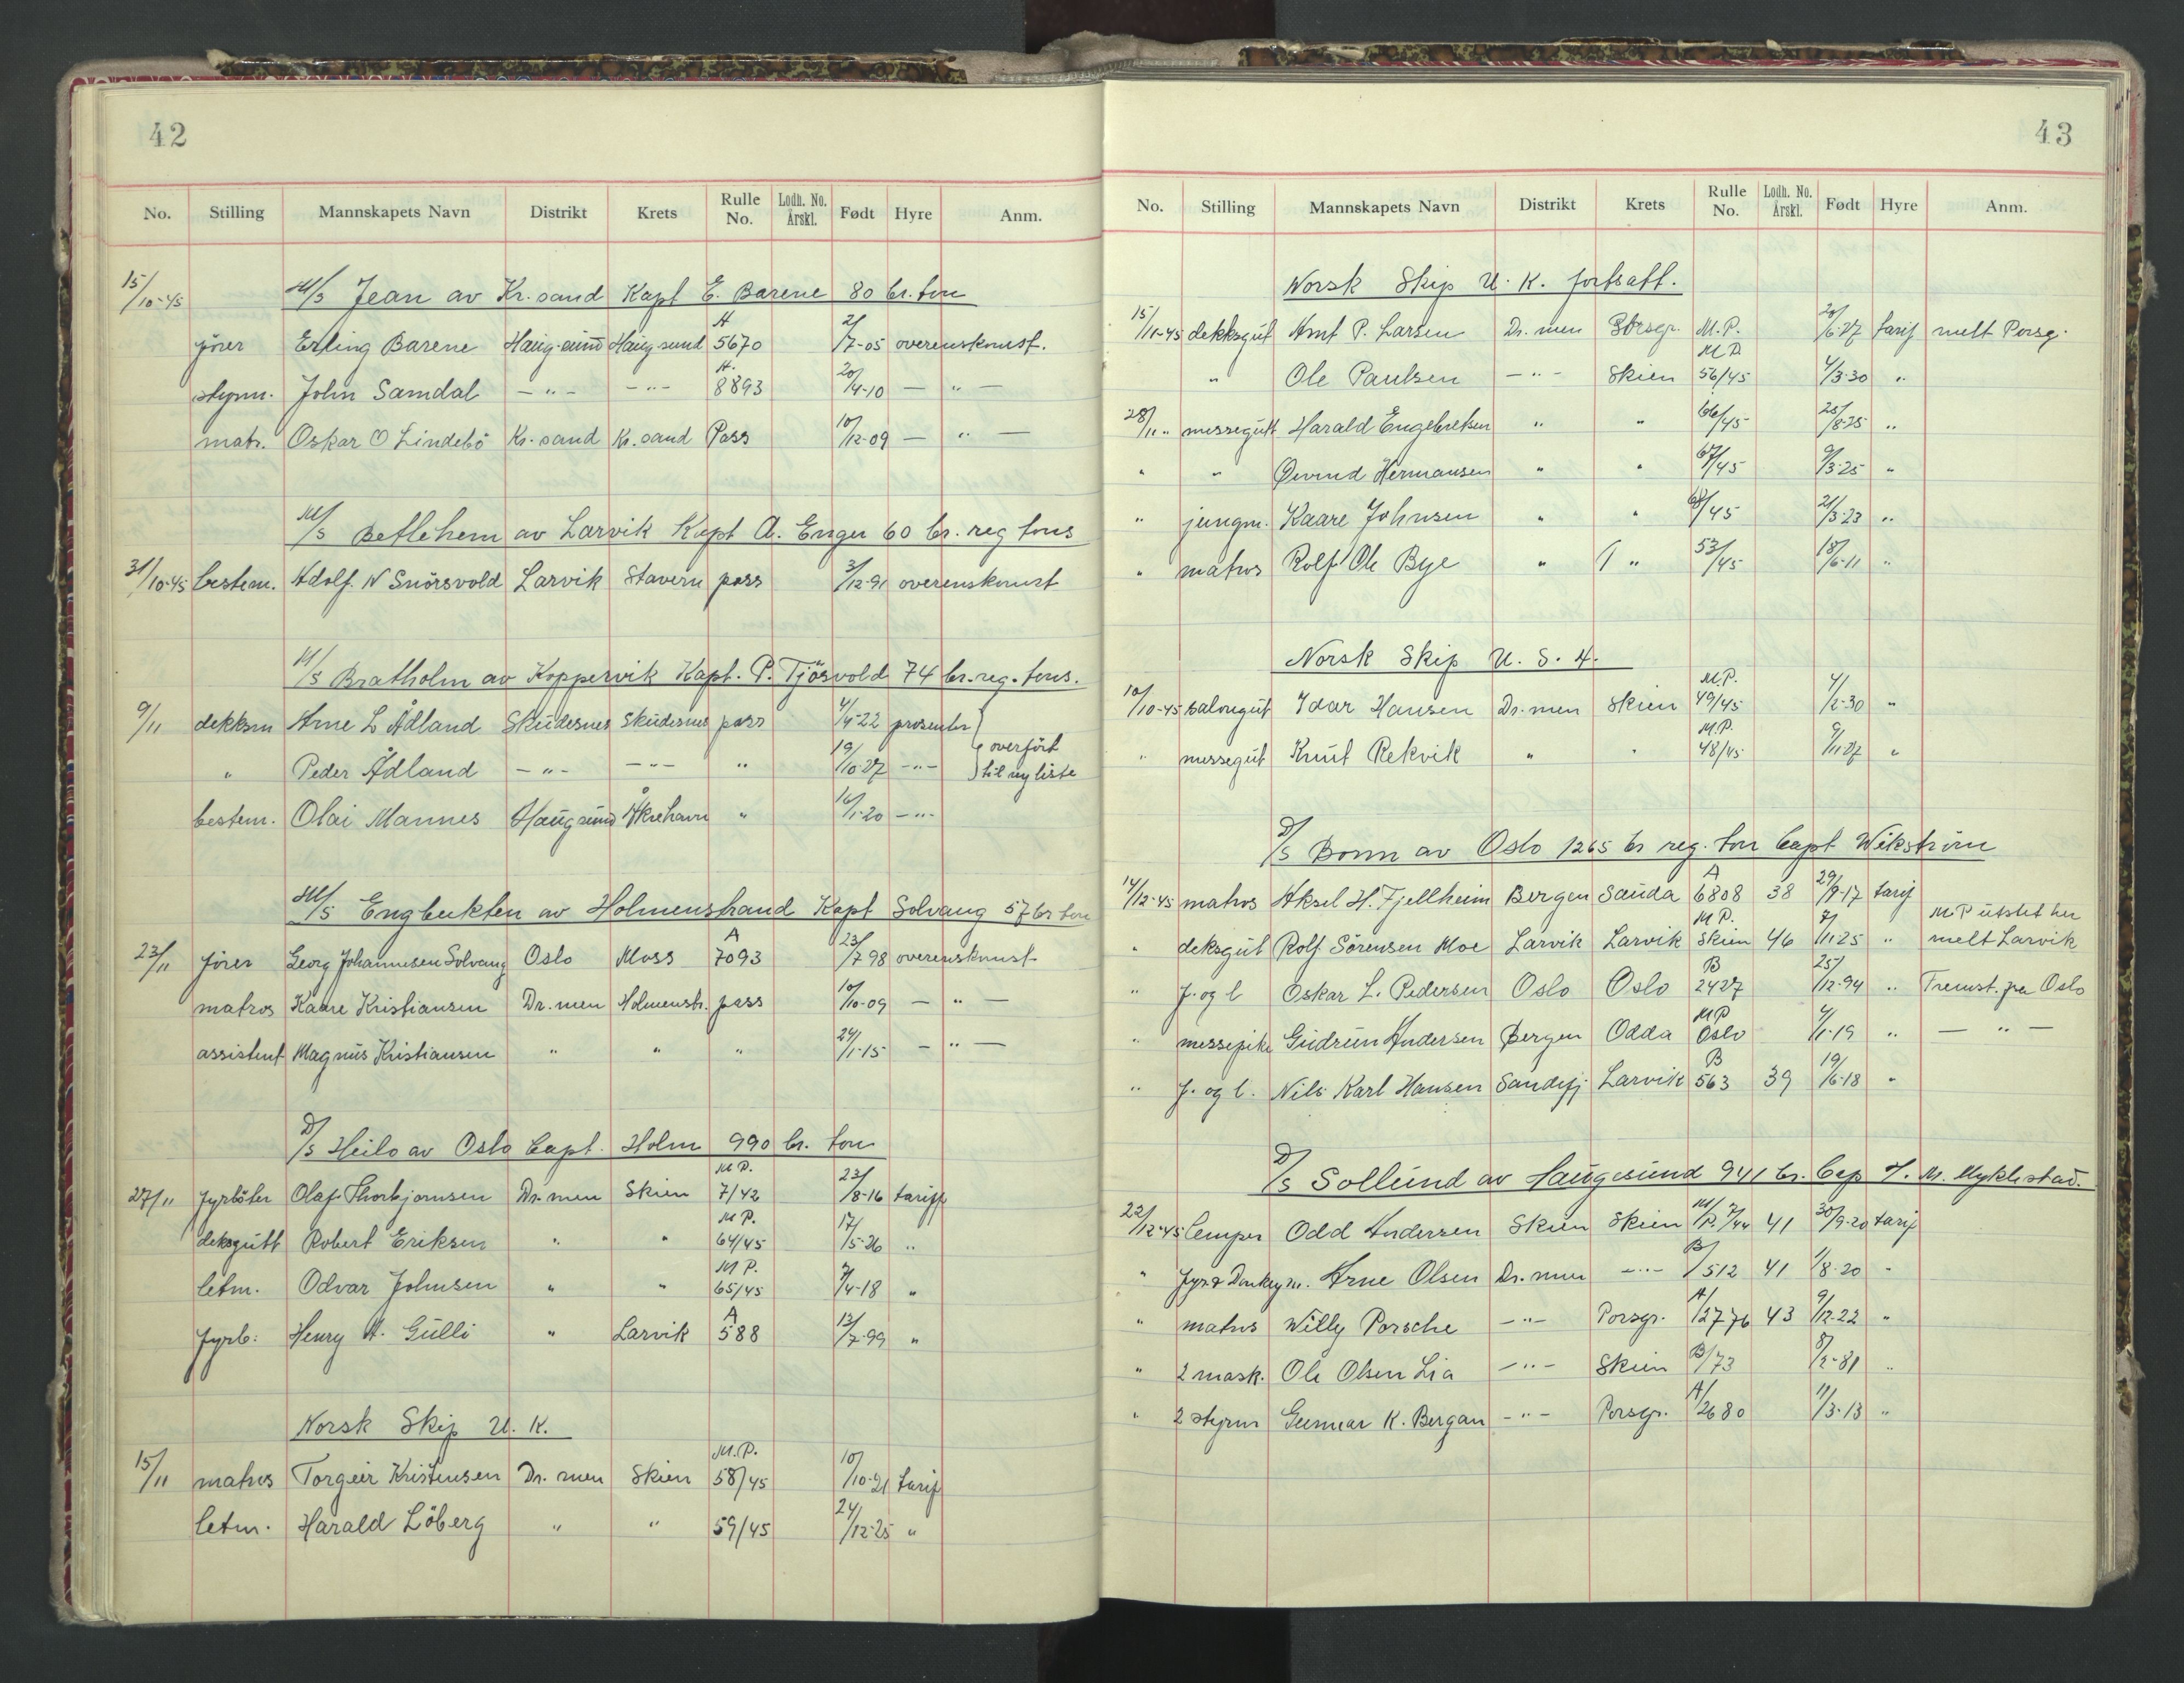 42
No. Stilling Mannskapets Navn Distrikt Krets Rulle No. Lodh. No. Årskl. Født Hyre Anm.
15/10-45 M/S Jean av Kr.sand Kapt E. Barene 80 br. ton
fører Erling Barene Haug.sund Haugsund A 5670 2/7-05 overenskomst.
styrm. John Samdal -"- -"- A. 8893 20/4-10 - " -
matr. Oskar O Lindebö Kr.sand Kr.sand Pass 10/12-09 - " -
M/S Betlehem av Larvik Kapt A. Enger 60 br. reg tons
31/10-45 bestem. Adolf. N Snörsvold Larvik Stavern pass 3/12-91 overenskomst
M/S Bratholm av Koppervik Kapt. P. Tjösvold 74 br.reg.tons.
9/11 dekksm Arne L Ådland Skudesnes Skudesnes pass 4/4-22 prosenter
" Peder Ådland -"- -"- " 19/10-27 -"- overført til ny liste
bestem. Olai Mannes Haugsund Åkrehavn " 16/1-20 -"-
M/S Engbukten av Holmenstrand Kapt Solvang 57 br ton
23/11 fører Georg Johannesen Solvang Oslo Moss A 7093 23/7-98 overenskomst
matros Kaare Kristiansen Dr.men Holmenstr. pass 10/10-09 - " -
assistent Magnus Kristiansen " " " 24/1-15 - " -
D/S Heilo av Oslo Capt. Holm 990 br. ton
27/11 fyrböter Olaf Thorbjørnsen Dr.men Skien M.P. 7/42 23/8-16 tariff
deksgutt Robert Eriksen " " M.P. 64/45 17/5-26 "
letm. Odvar Johnsen " " M P. 65/45 /4-18 "
fyrb. Henry A. Gulli " Larvik A 588 13/7-99 "
Norsk Skip U. K.
15/11 matros Torgeir Kristensen Dr. men Skien M.P. 58/45 10/10-21 tarif
letm. Harald Löberg " " 59/45 24/12-25 "
43
No. Stilling Mannskapets Navn Distrikt Krets Rulle No. Lodh. No. Årskl. Født Hyre Anm.
Norsk Skip U. K. fortsatt.
15/11-45 dekksgut Arnt P. Larsen Dr. men Porsgr. M.P. 20/6-27 tarif melt Porsg.
" Ole Paulsen -"- Skien M P. 56/45 4/3-30 "
28/11 " messegutt Harald Engebretsen " " 66/45 25/8-25 "
" " Øivind Hermansen " " 67/45 9/3-25 "
" jungm. Kaare Johnsen " " 68/45 21/3-23 "
" matros Rolf Ole Bye " " 53/45 18/6-11 "
Norsk Skip U. S. A.
10/10-45 salongut Idar Hansen Dr.men Skien M.P. 49/45 4/2-30 "
" messegut Knut Rekvik " " M.P. 48/45 9/11-27 "
D/S Bonn av Oslo 1265 br reg. ton Capt Wikström
14/12-45 matros Aksel H. Fjellheim Bergen Sauda A 6808 38 29/9-17 tarif
" deksgut Rolf Sörensen Moe Larvik Larvik M P. Skien 46 /11-25 " M.P utstet her melt Larvik
" f. og l Oskar L. Pedersen Oslo Oslo B 2427 25/12-94 " Fremst. fra Oslo
" messepike Gudrun Andersen Bergen Odda M P Oslo 4/1-19 " - " -
" f. og l. Nils Karl Hansen Sandefj Larvik B 563 39 19/6-18 "
D/S Sollund av Haugesund 941 br. Cap M. Myklestad.
22/12-45 lemper Odd Andersen Skien Skien M/P. 7/44 41 30/9-20 tarif
" fyr & Donkeym. Arne Olsen Dr. men -"- B/512 41 1/8-20 "
" matros Willy Porsche -"- Porsgr. A/2776 43 9/12-22 "
" 2 mask. Ole Olsen Lia -"- Skien B/73 8/2-81 "
" 2 styrm Gunnar K. Bergan -"- Porsgr. A/2680 11/3-13 "